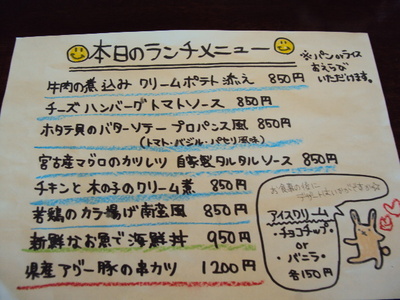 本日のランチメニュー
※パンorライス
おえらび
いただけます。
牛肉の煮込み クリームポテト添え 850円
チーズハンバーグトマトソース 850円
ホタテ貝のバターソテー プロバンス風 850円
(トマト・バジル・パセリ風味)
宮古産マグロのカツレツ 自家製タルタルソース 850円
チキンと木の子のクリーム煮 850円
若鶏のカラ揚げ南蛮風 850円
新鮮なお魚で海鮮丼 950円
県産アグー豚の串カツ 1200円
お食事の後に
デザートはいかがですか?
アイスクリーム
・チョコチップ
or
・バニラ
各150円